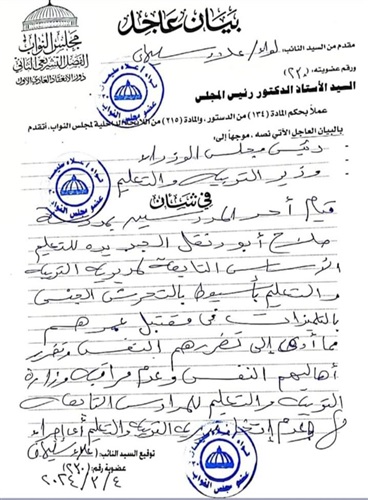 بيان عاجل
مجلس النواب
الفصل التشريعي الثاني
دور الانعقاد العادي الرابع
مقدم من السيد النائب: لواء/ علاء سليمان
ورقم عضويته: (٢٢٠)
السيد الأستاذ الدكتور رئيس المجلس
عملاً بحكم المادة (١٣٤) من الدستور، والمادة (٢١٥) من اللائحة الداخلية لمجلس النواب، أتقدم
بالبيان العاجل الآتي نصه، موجهاً إلى:
رئيس مجلس الوزراء
وزير التربية والتعليم
في شأن
قيام أحد المدرسين بمدرسة
صلاح أبو دنقل الجديدة للتعليم
الأساسى التابعة لمديرية التربية
والتعليم بأسيوط بالتحرش الجنسى
بالتلميذات فى مقتبل عمرهم
مما أدى إلى تضررهم النفسى وتضرر
أهاليهم النفسى وعدم مراقبة وزارة
التربية والتعليم للمدارس التابعة
وعدم اتخاذ التربية والتعليم أى إجراء
توقيع السيد النائب: علاء سليمان
عضوية رقم: (٢٢٠)
٢٠٢٤/٣/٤